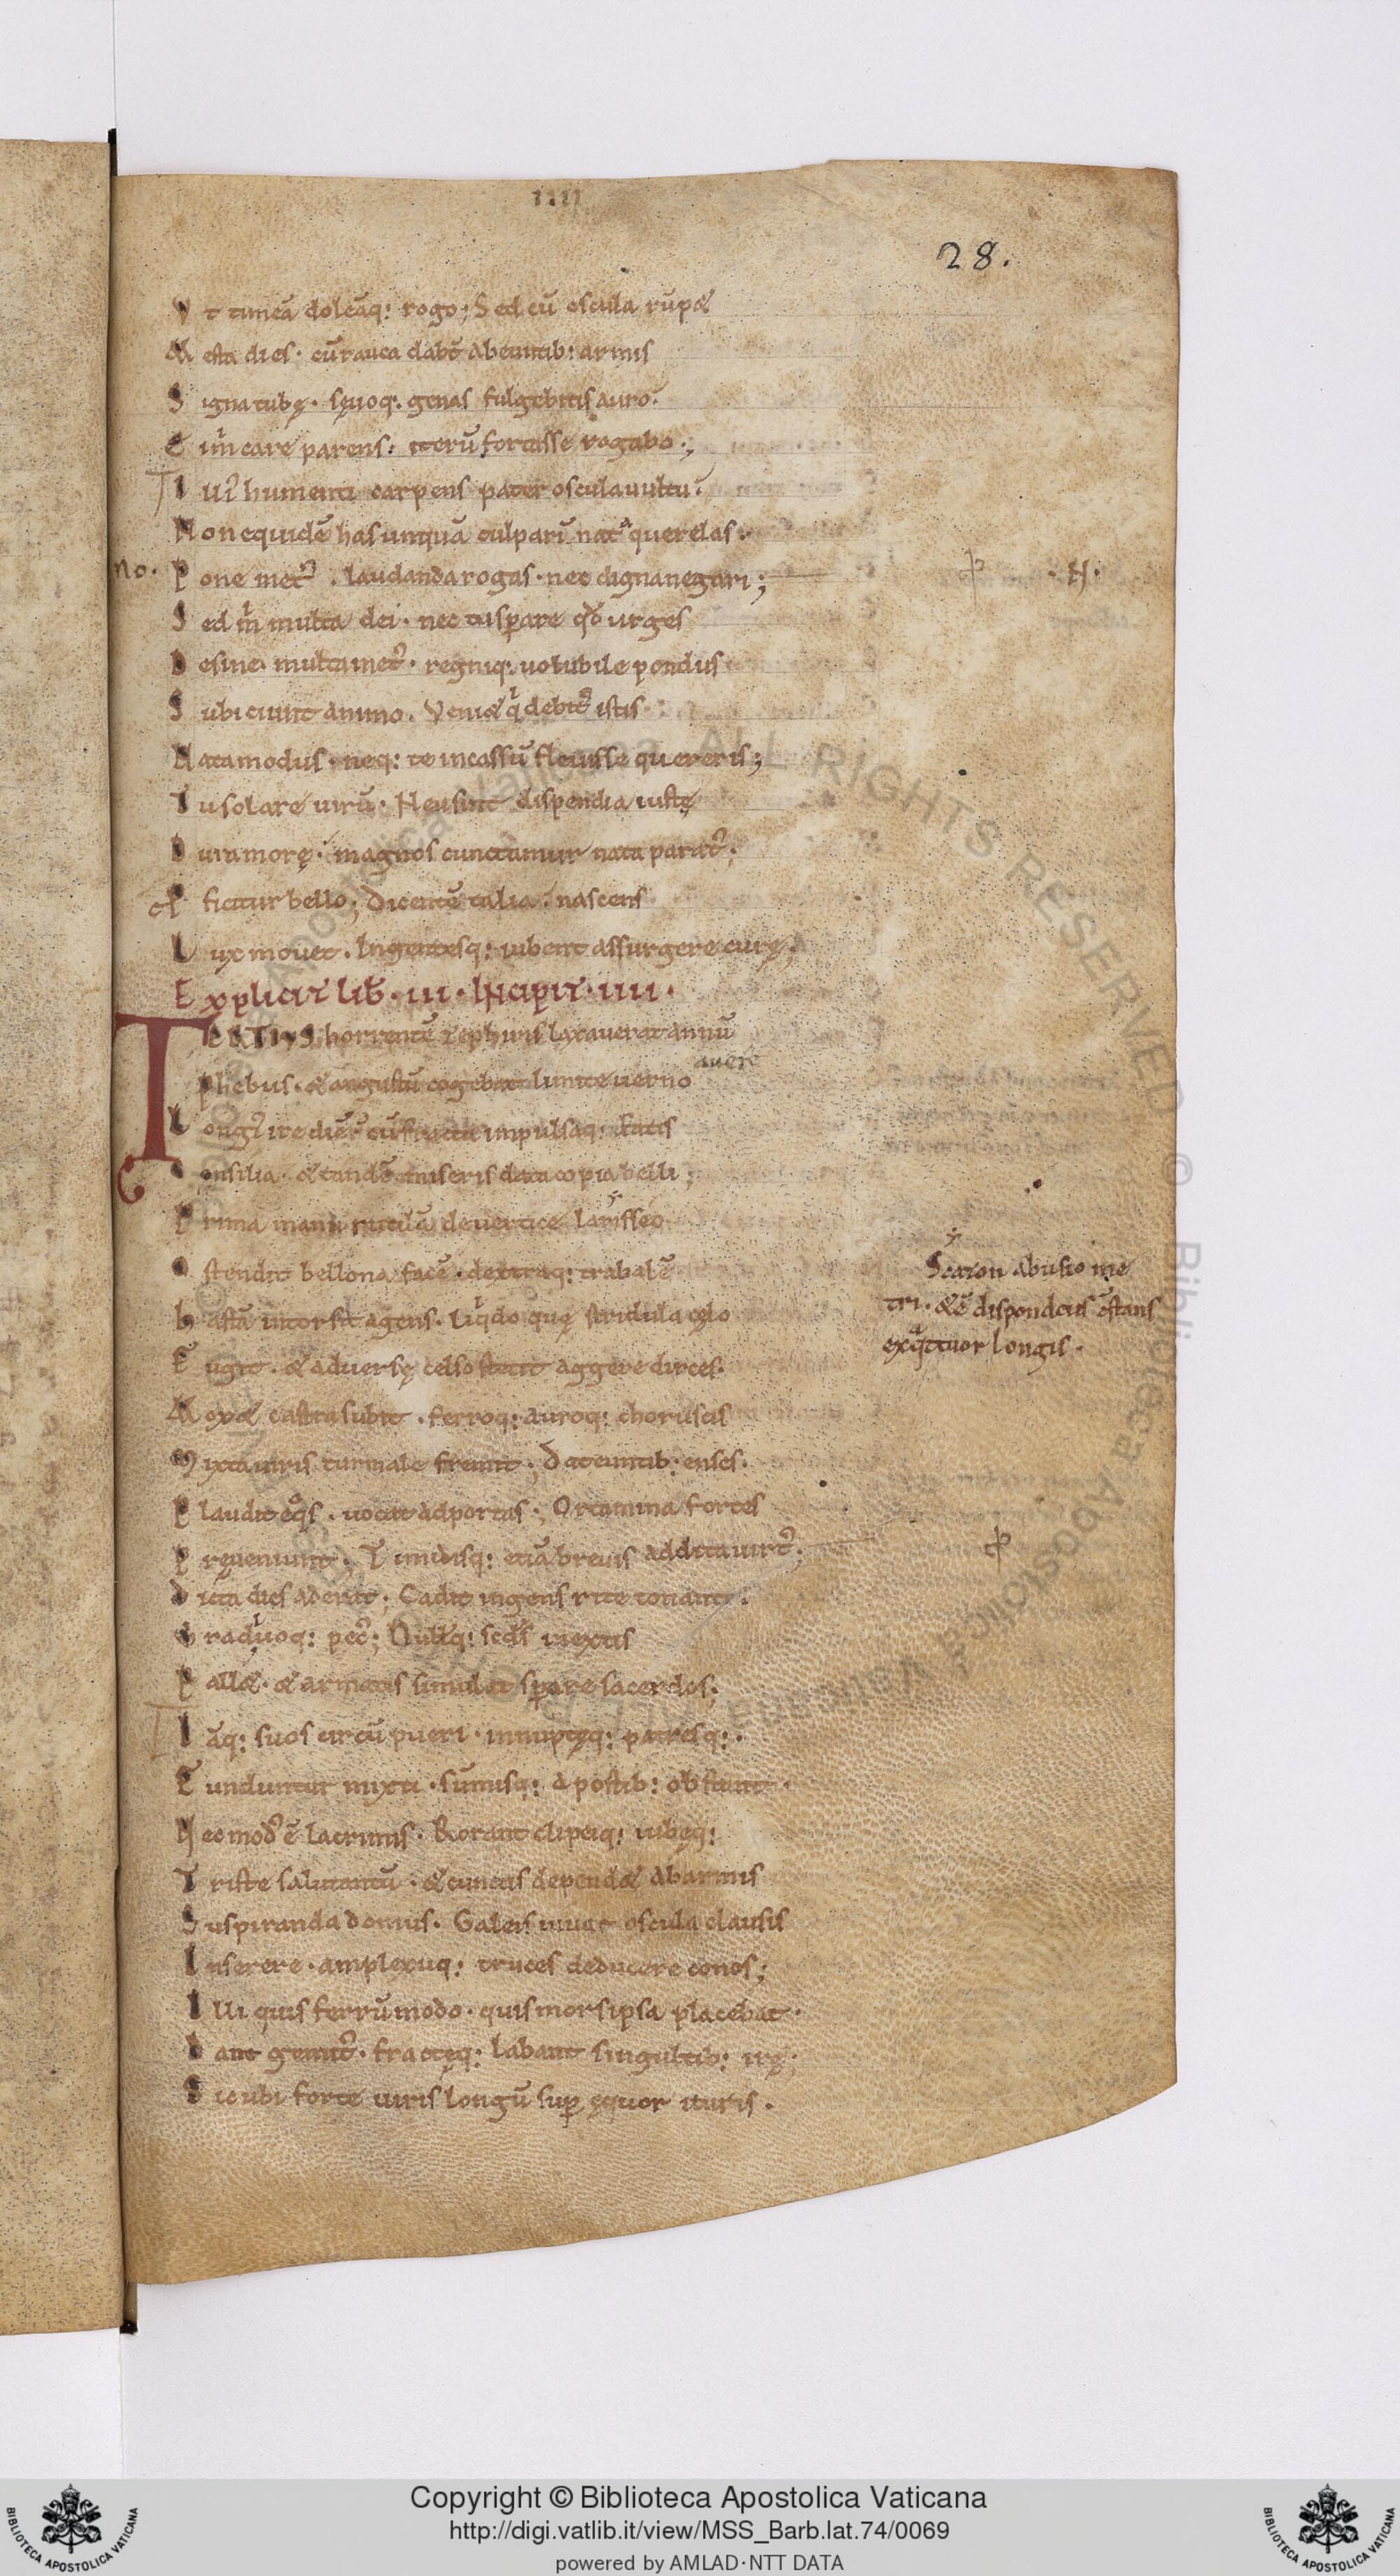 IIII
28.
V t timeā doleāq: rogo; Sed cū oscula rūpæ
M esta dies. cū rauca dabt̄ abeuntib: armis
S igna tubę. sęuoq. genas fulgebitis auro.
E i m̄ care parens: iterū fortasse rogabo.;
I lli᾽ humenti carpens pater oscula uultu.
N on equidē has unquā culparī nata querelas:
no. P one met᾽. laudanda rogas. nec digna negari;
S ed m̄ multa dei. nec tu sꝑare qđ urges
D esine. multa met᾽. regniq: uolubile pondus
S ubiciunt animo. Veniæ q̇ debit᾽ istis
N ata modus. neq: te incassū fleuisse quereris;
T u solare uirū. Neu sint dispendia iustę
D ura morę. magnos cunctamur nata parat᾽;
P ficitur bello; Dicentē talia. nascens
L ux mouet. Ingentesq: iubent assurgere curę;
Explicit liƀ. III. Incipit. IIII.
TERTIVS horrentē zephiris laxauerat annū
Phebus. & angustū cogebat limite uerno
auere
L ongi᾽ ire diē᾽ cū fracta impulsaq: fatis
C onsilia. & tandē miseris data copia belli;
P rima manu rutilā de uertice larisseo
O stendit bellona facē. dextraq: trabalē
h astā intorsit agens. liq̇do quę stridula cęlo
F ugit. & aduersę celso stetit aggere dirces.
M ox & castra subit. ferroq: auroq: choruscis
M ixta uiris turmale fremit; Dat euntib: enses.
P laudit eq̊s. uocat ad portas; Ortamina fortes
P ręueniunt. Timidisq: etiā breuis addita uirt᾽;
D icta dies aderat; Cadit ingens rite tonanti.
G radiuoq: pec᾽; Nullisq: scd᾽s in extis
P allæ. & armatis simulat sꝑare sacerdos;
I āq: suos circū pueri. innuptęq: patresq:.
F unduntur mixti. sūmisq: a postib: obstant.
N ec mod᾽ ē lacrimis. Rorant clipeiq: iubęq:
T riste salutantū. & cunctis dependæ ab armis
S uspiranda domus. Galeis iuuat oscula clausis
I nserere. amplexuq: truces deducere conos;
I lli quis ferrū modo. quis mors ipsa placebat.
D ant gemit᾽. fractęq: labant singultib: irę;
S ic ubi forte uiris longū suꝑ ęquor ituris.
. N.
Scazon abusio me
tri. & ē dispondeus cstans
ex q̇ttuor longis.
Copyright © Biblioteca Apostolica Vaticana
http://digi.vatlib.it/view/MSS_Barb.lat.74/0069
powered by AMLAD·NTT DATA